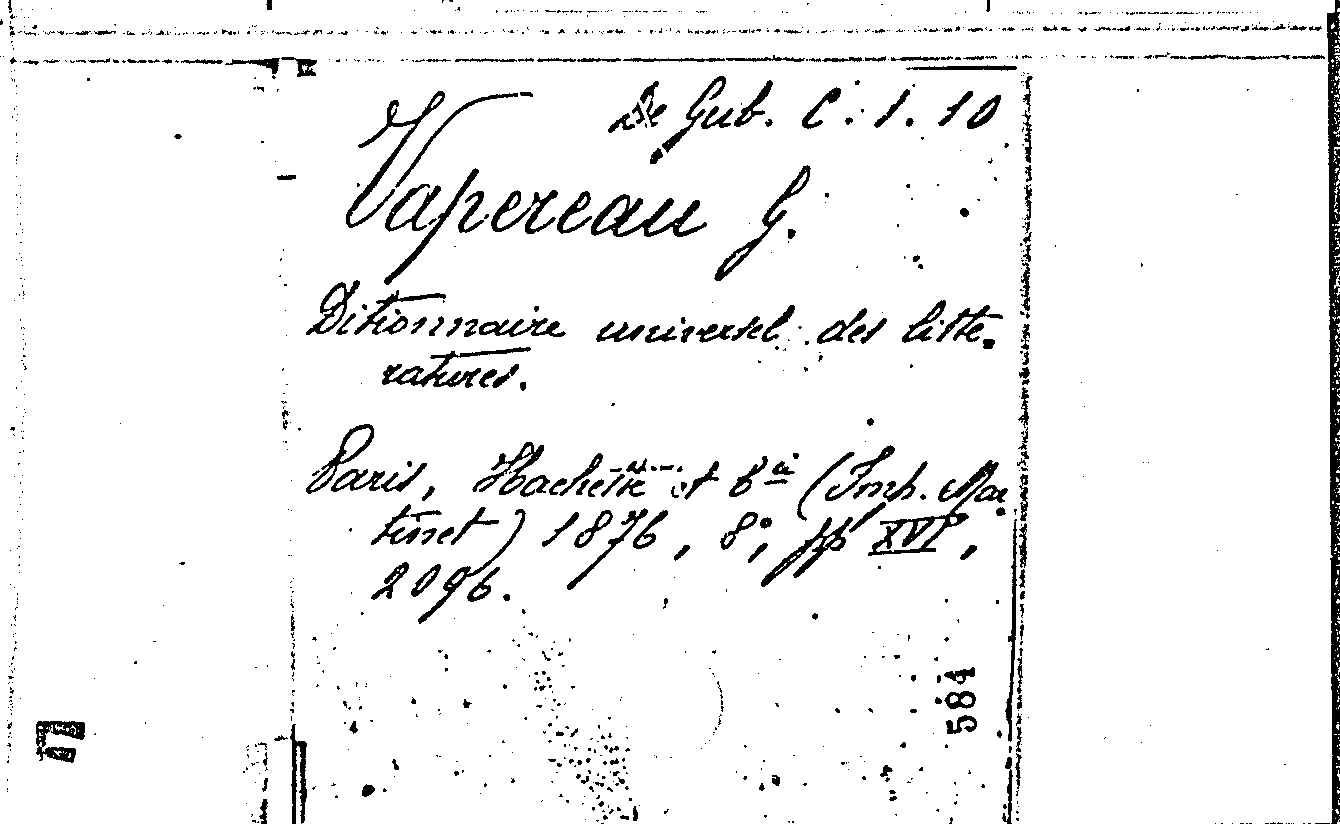 De Gub. C. 1. 10
Vapereau G.
Ditionnaire universel des litte-
ratures.
Paris, Hachette et C.ie (Imp. Mar-
tinet) 1876, 8°, pp XVI,
2096.
584